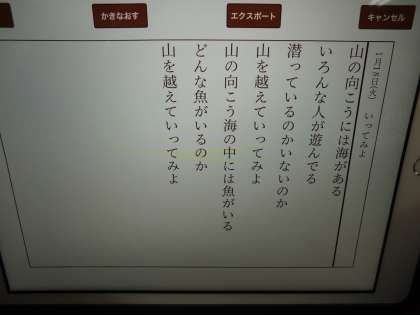 かきなおす
エクスポート
キャンセル
1月18日(火) いってみよ
山の向こうには海がある
いろんな人が遊んでる
潜っているのかいないのか
山を越えていってみよ
山の向こう海の中には魚がいる
どんな魚がいるのか
山を越えていってみよ